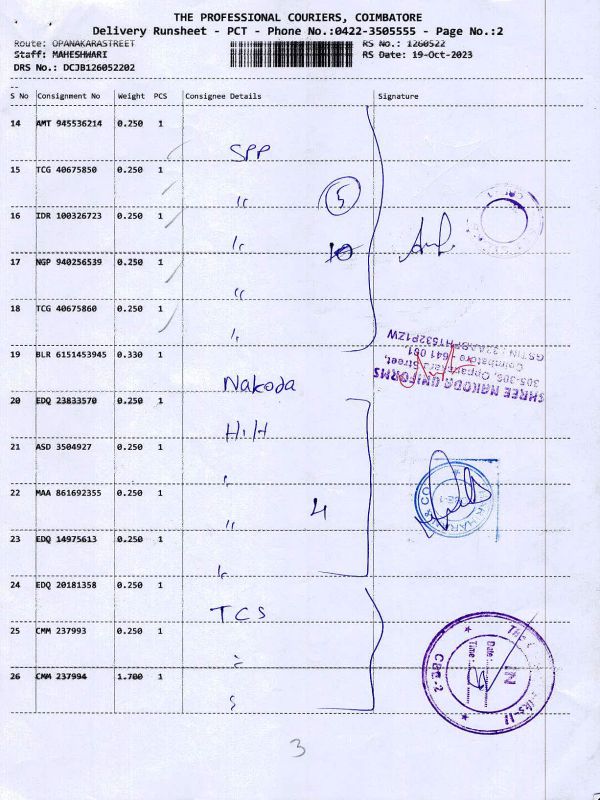 THE PROFESSIONAL COURIERS, COIMBATORE
Delivery Runsheet - PCT - Phone No.:0422-3505555 - Page No.:2
Route: OPANAKARASTREET RS No.: 1260522
Staff: MAHESHWARI RS Date: 19-Oct-2023
DRS No.: DCJB126052202
S No Consignment No Weight PCS Consignee Details Signature
14 AMT 945536214 0.250 1
SPP
15 TCG 40675850 0.250 1
" 5
16 IDR 100326723 0.250 1
"
17 NGP 940256539 0.250 1
"
18 TCG 40675860 0.250 1
"
19 BLR 6151453945 0.330 1
Nakoda
SHREE NAKODA UNIFORMS
305-306, Oppanakara Street,
Coimbatore 641 001.
20 EDQ 23833570 0.250 1
HIH
21 ASD 3504927 0.250 1
"
22 MAA 861692355 0.250 1
" 4
23 EDQ 14975613 0.250 1
"
24 EDQ 20181358 0.250 1
TCS
25 CMM 237993 0.250 1
"
26 CMM 237994 1.700 1
"
IN
Date:
Time:
CBE-2
3